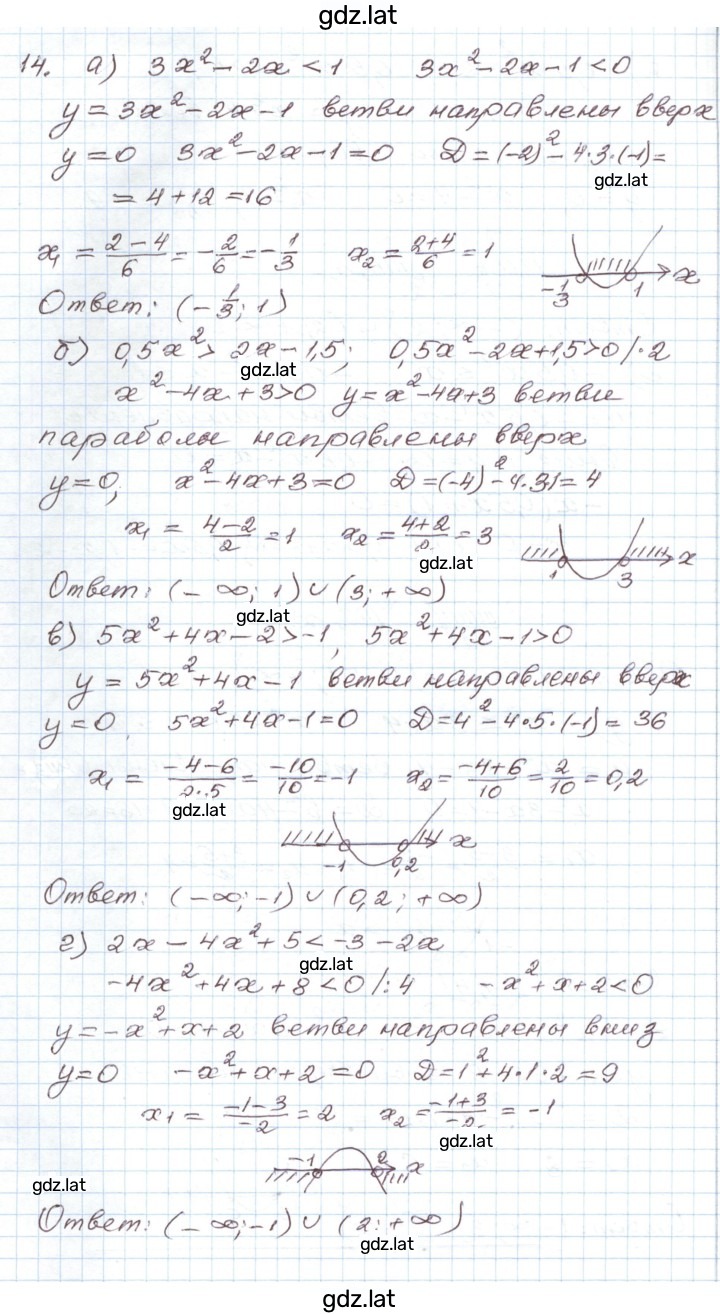 gdz.lat
14. а) 3x² - 2x < 1    3x² - 2x - 1 < 0
y = 3x² - 2x - 1 ветви направлены вверх
y = 0  3x² - 2x - 1 = 0  D = (-2)² - 4·3·(-1) =
gdz.lat
= 4 + 12 = 16
x₁ = (2-4)/6 = -2/6 = -1/3  x₂ = (2+4)/6 = 1
-1/3  1  x
Ответ: (-1/3; 1)
б) 0,5x² > 2x - 1,5;  0,5x² - 2x + 1,5 > 0 /·2
gdz.lat
x² - 4x + 3 > 0  y = x² - 4x + 3 ветви
параболы направлены вверх
y = 0;  x² - 4x + 3 = 0  D = (-4)² - 4·3·1 = 4
x₁ = (4-2)/2 = 1  x₂ = (4+2)/2 = 3
gdz.lat
1  3  x
Ответ: (-∞; 1) ∪ (3; +∞)
gdz.lat
в) 5x² + 4x - 2 > -1,  5x² + 4x - 1 > 0
y = 5x² + 4x - 1 ветви направлены вверх
y = 0  5x² + 4x - 1 = 0  D = 4² - 4·5·(-1) = 36
x₁ = (-4-6)/(2·5) = -10/10 = -1  x₂ = (-4+6)/10 = 2/10 = 0,2
gdz.lat
-1  0,2  x
Ответ: (-∞; -1) ∪ (0,2; +∞)
г) 2x - 4x² + 5 < -3 - 2x
gdz.lat
-4x² + 4x + 8 < 0 /:4  -x² + x + 2 < 0
y = -x² + x + 2 ветви направлены вниз
y = 0  -x² + x + 2 = 0  D = 1² + 4·1·2 = 9
x₁ = (-1-3)/-2 = 2  x₂ = (-1+3)/-2 = -1
gdz.lat
-1  2  x
gdz.lat
Ответ: (-∞; -1) ∪ (2; +∞)
gdz.lat
gdz.lat